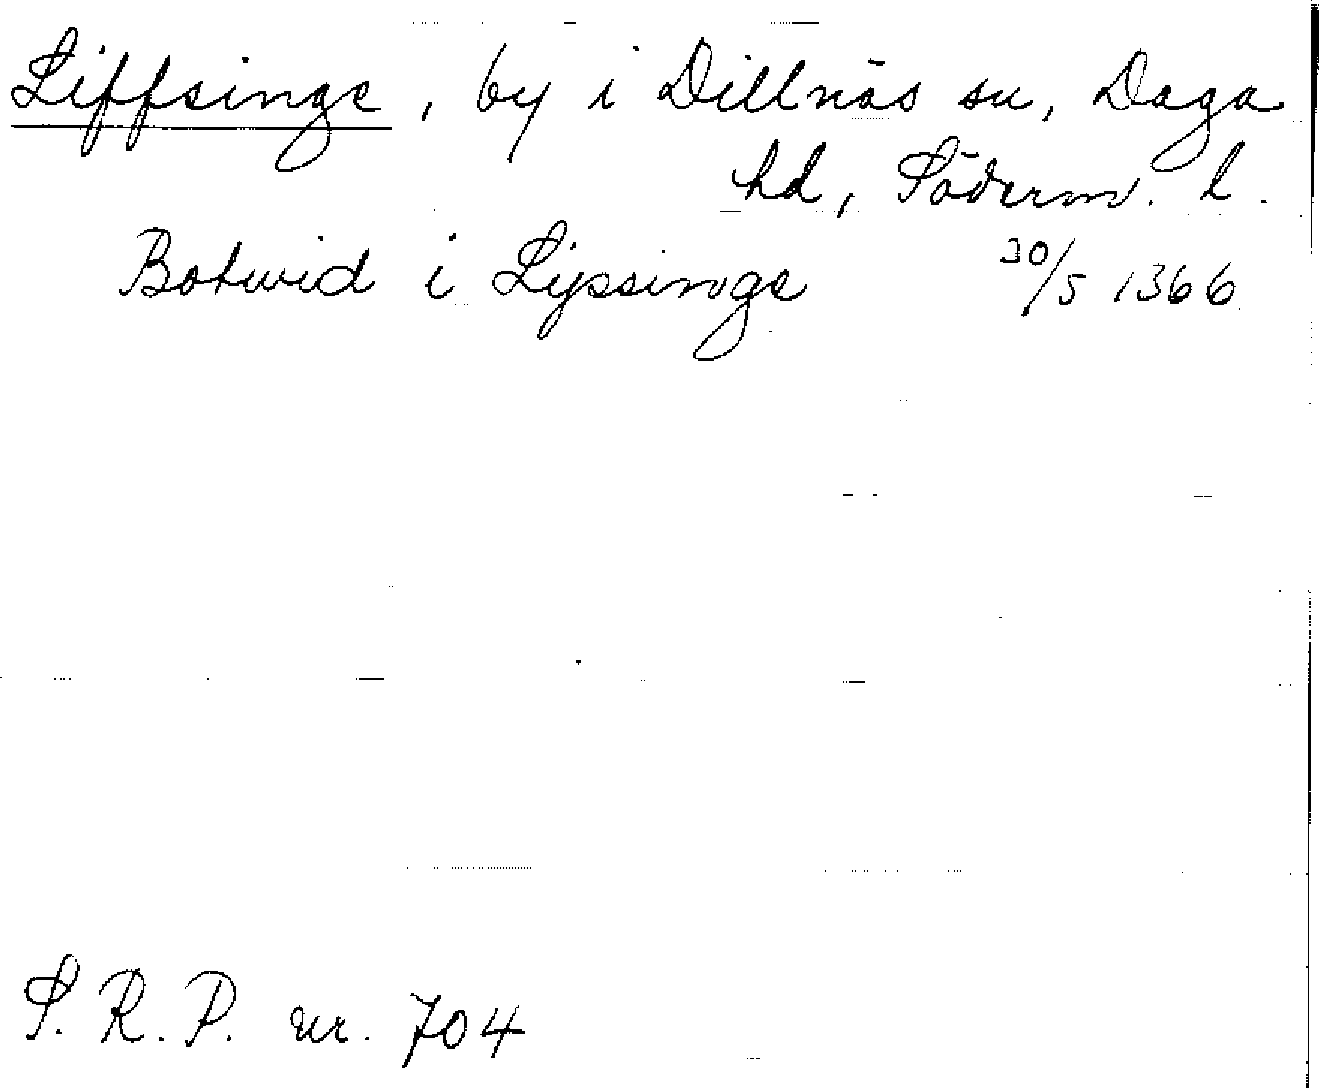 Liffsinge, by i Dillnäs sn, Daga
hd, Söderm. l.
Botwid i Lypsinge 30/5 1366
S. R. P. nr. 704